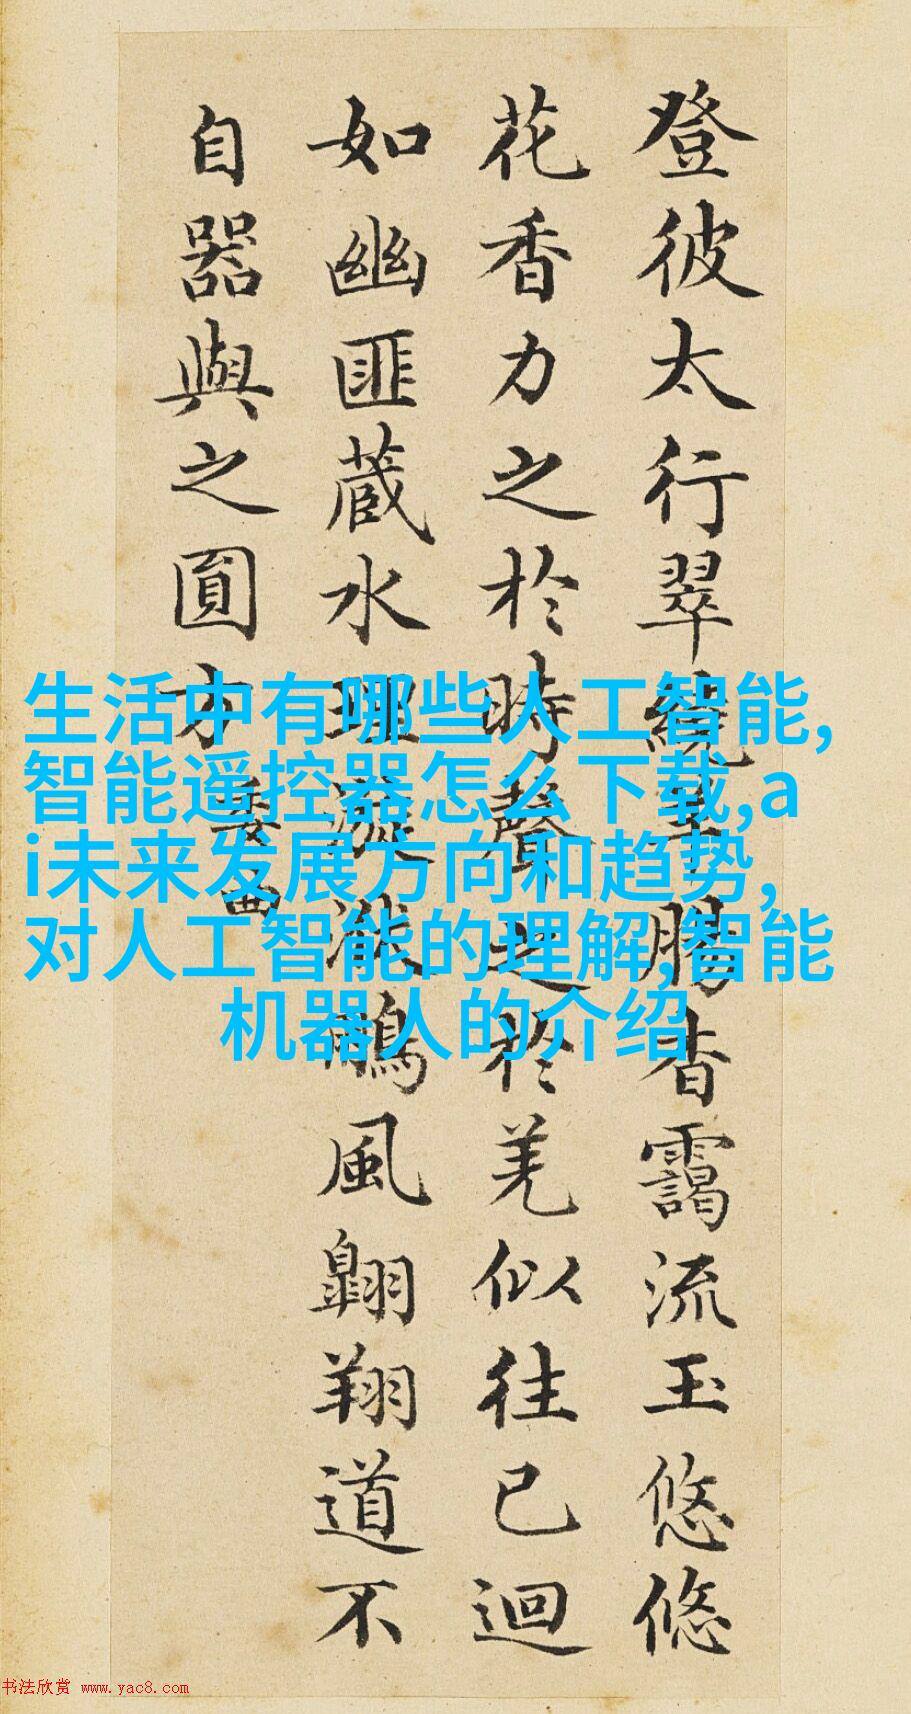 登彼太行翠繞羊腸杳靄流玉悠悠
花香力之於時聲之於羌似往已迴
如幽匪蔵水理漩洑鵬風翺翔道不
自器與之圓方
委曲
生活中有哪些人工智能,
智能遥控器怎么下载,a
i未来发展方向和趋势,
对人工智能的理解,智能
机器人的介绍
书法欣赏 www.yac8.com